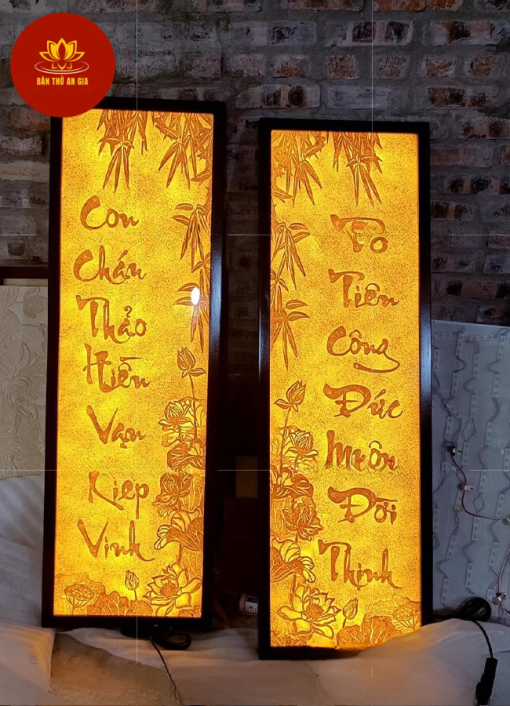 LVI
BÀN THỜ AN GIA
Con
Cháu
Thảo
Hiền
Vạn
Kiếp
Vinh
Tổ
Tiên
Công
Đức
Muôn
Đời
Thịnh